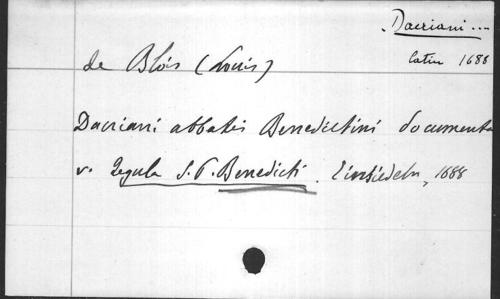 Dacriani ...
latin 1688
de Blois (Louis)
Dacriani abbatis Benedictini documenta
v. Regula S. P. Benedicti. Einsiedeln, 1688